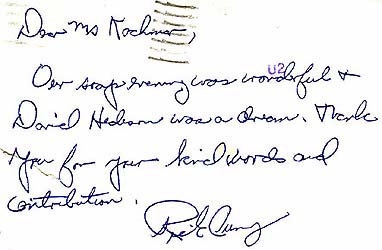 Dear Ms Kochman,
U2
Our soap evening was wonderful &
David Hedison was a dream. Thank
You for your kind words and
contribution.